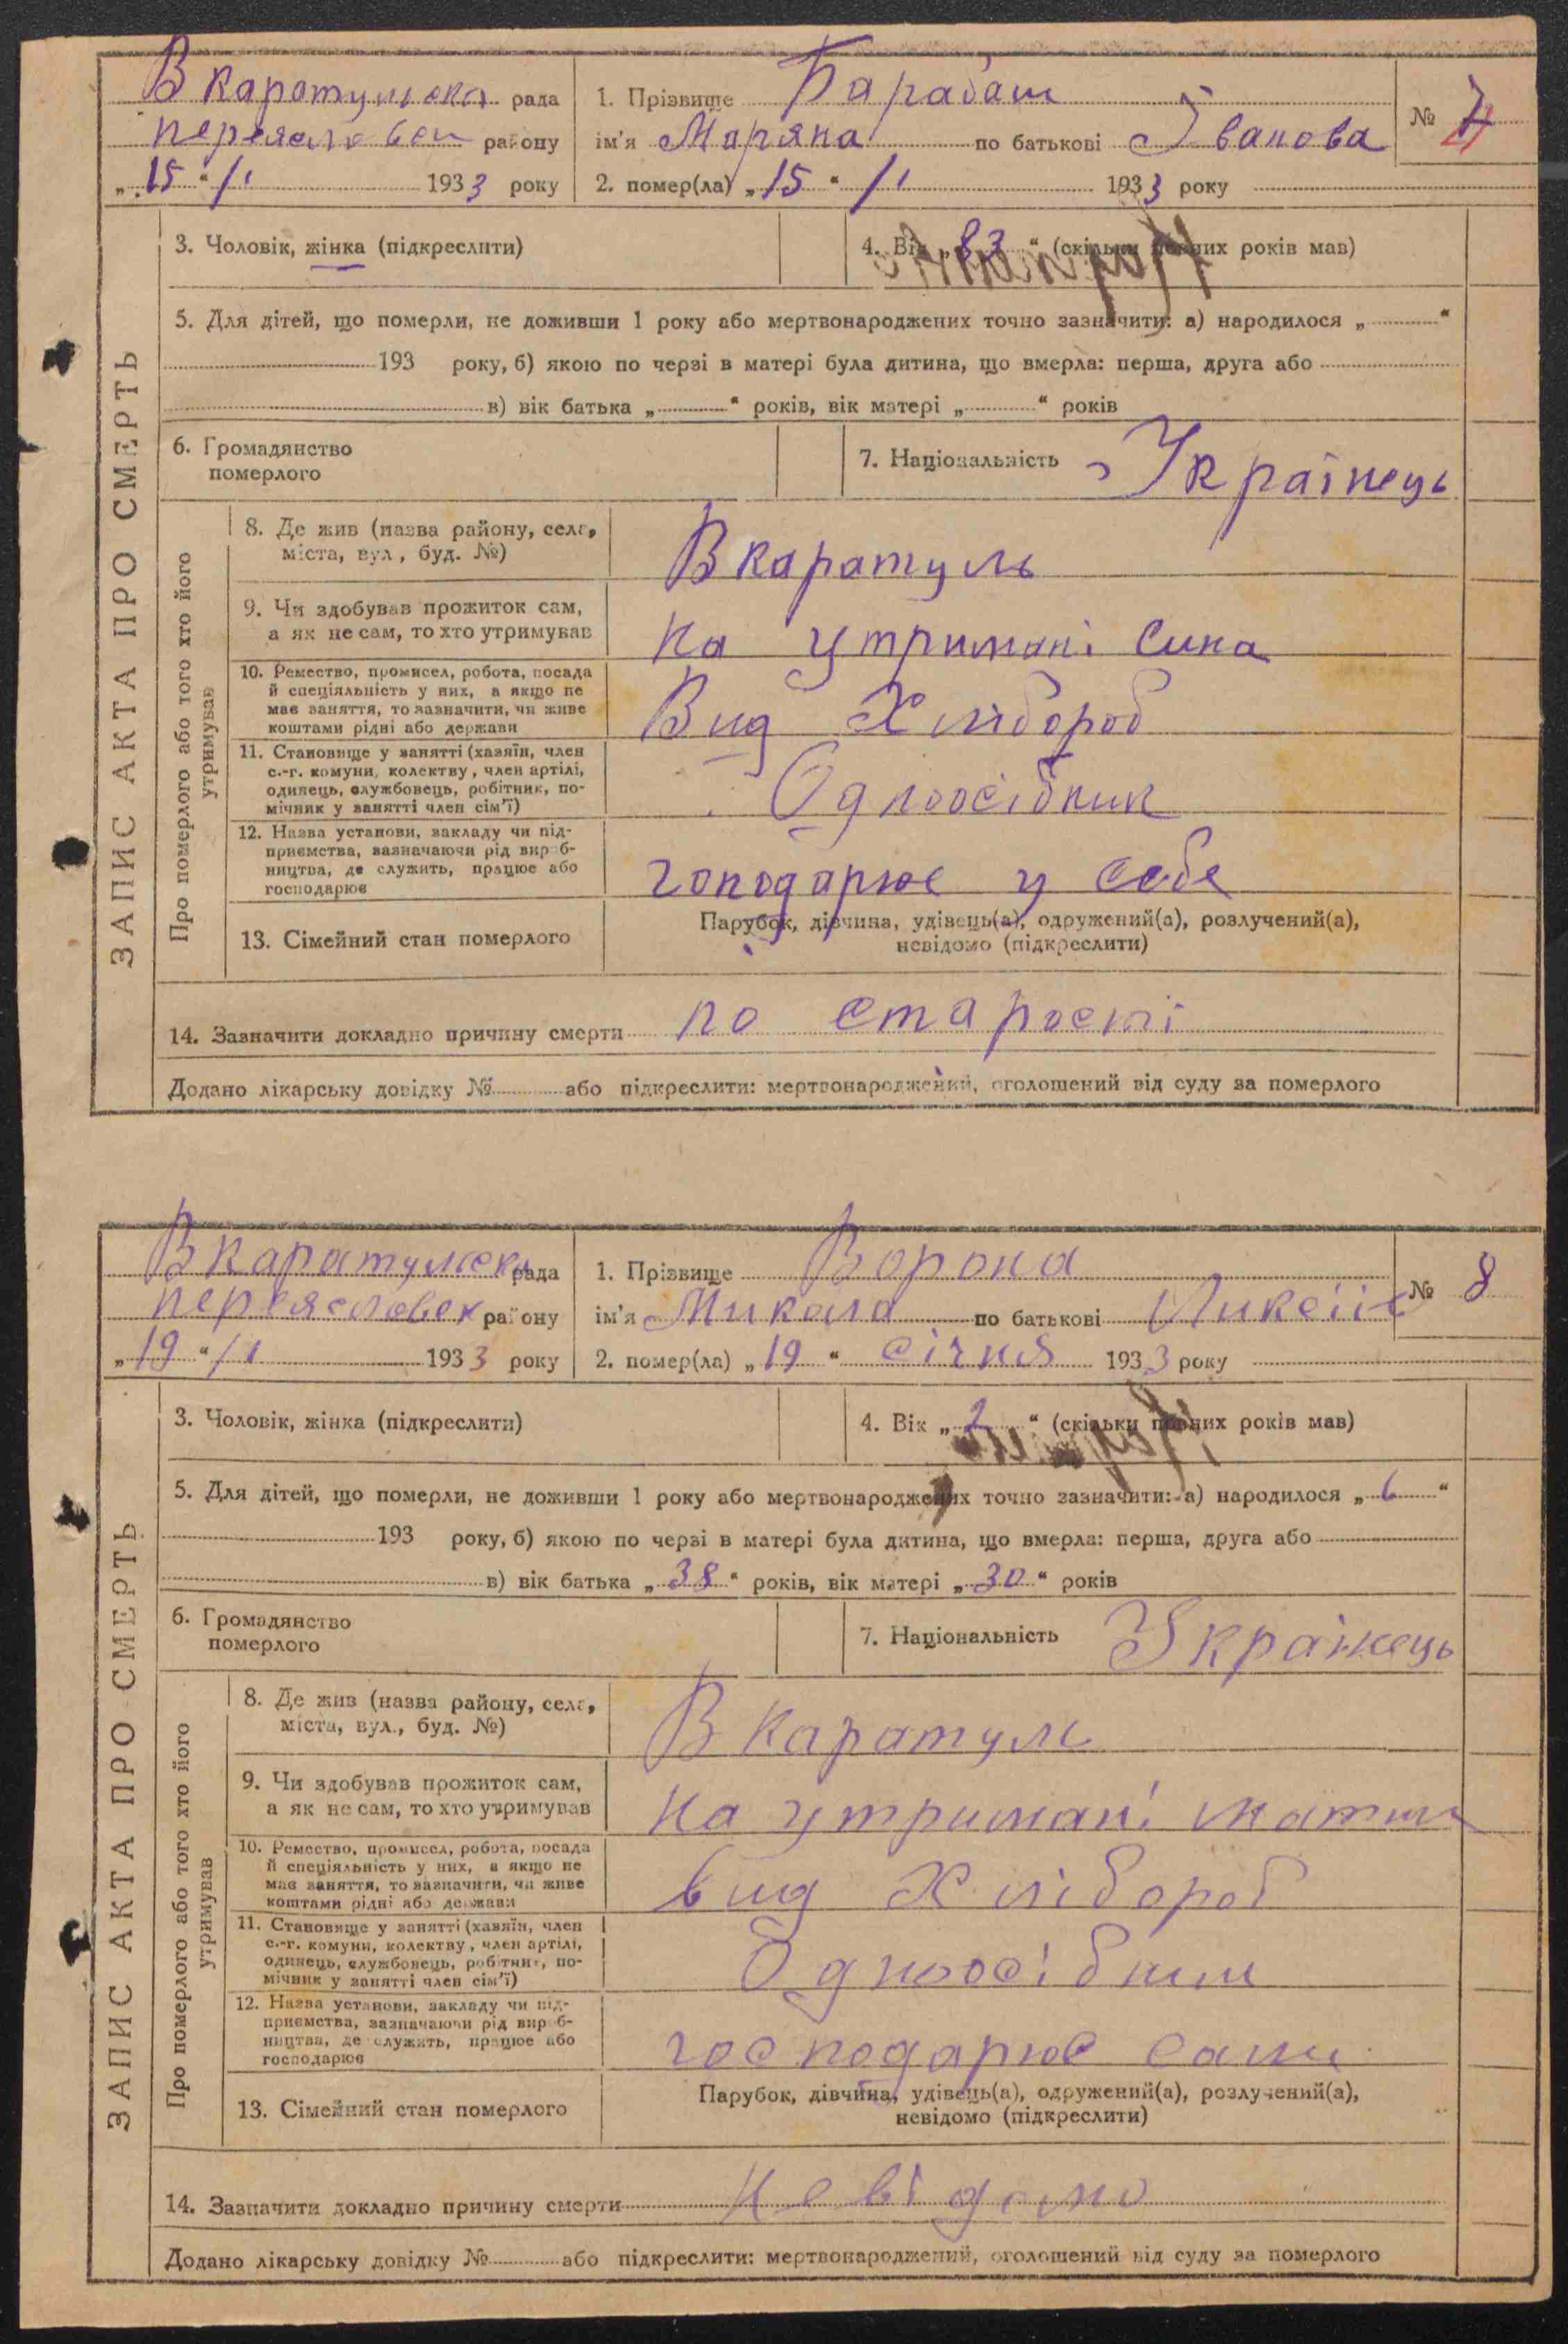 ЗАПИС АКТА ПРО СМЕРТЬ
В Каратульска рада
Переяславськ району
„15“ /І 1933 року
1. Прізвище Барабаш
ім'я Маряна по батькові Іванова
2. помер(ла) „15“ /І 1933 року
№ 7
3. Чоловік, жінка (підкреслити)
4. Вік „83“ (скільки повних років мав)
5. Для дітей, що померли, не доживши 1 року або мертвонароджених точно зазначити: а) народилося „ “
193 року, б) якою по черзі в матері була дитина, що вмерла: перша, друга або
в) вік батька „ “ років, вік матері „ “ років
6. Громадянство
померлого
7. Національність Українець
Про померлого або того хто його
утримував
8. Де жив (назва району, села,
міста, вул., буд. №)
В Каратуль
9. Чи здобував прожиток сам,
а як не сам, то хто утримував
на утримані сина
10. Ремество, промисел, робота, посада
й спеціяльність у них, а якщо не
має заняття, то зазначити, чи живе
коштами рідні або держави
Вид Хлібороб
11. Становище у занятті (хазяїн, член
с.-г. комуни, колективу, член артілі,
одинець, службовець, робітник, по-
мічник у занятті член сім'ї)
Одноосібник
12. Назва установи, закладу чи під-
приємства, зазначаючи рід вироб-
ництва, де служить, працює або
господарює
гоподарює у себе
13. Сімейний стан померлого
Парубок, дівчина, удівець(а), одружений(а), розлучений(а),
невідомо (підкреслити)
14. Зазначити докладно причину смерти по старості
Додано лікарську довідку № або підкреслити: мертвонароджений, оголошений від суду за померлого
ЗАПИС АКТА ПРО СМЕРТЬ
В Каратульска рада
Переяславськ району
„19“ /І 1933 року
1. Прізвище Ворона
ім'я Микола по батькові
2. помер(ла) „19“ січня 1933 року
№ 8
3. Чоловік, жінка (підкреслити)
4. Вік „2“ (скільки повних років мав)
5. Для дітей, що померли, не доживши 1 року або мертвонароджених точно зазначити: а) народилося „6“
193 року, б) якою по черзі в матері була дитина, що вмерла: перша, друга або
в) вік батька „38“ років, вік матері „30“ років
6. Громадянство
померлого
7. Національність Українець
Про померлого або того хто його
утримував
8. Де жив (назва району, села,
міста, вул., буд. №)
В Каратулі
9. Чи здобував прожиток сам,
а як не сам, то хто утримував
на утримані матки
10. Ремество, промисел, робота, посада
й спеціяльність у них, а якщо не
має заняття, то зазначити, чи живе
коштами рідні або держави
вид Хлібороб
11. Становище у занятті (хазяїн, член
с.-г. комуни, колективу, член артілі,
одинець, службовець, робітник, по-
мічник у занятті член сім'ї)
Одноосібник
12. Назва установи, закладу чи під-
приємства, зазначаючи рід вироб-
ництва, де служить, працює або
господарює
господарює сами
13. Сімейний стан померлого
Парубок, дівчина, удівець(а), одружений(а), розлучений(а),
невідомо (підкреслити)
14. Зазначити докладно причину смерти невідомо
Додано лікарську довідку № або підкреслити: мертвонароджений, оголошений від суду за померлого